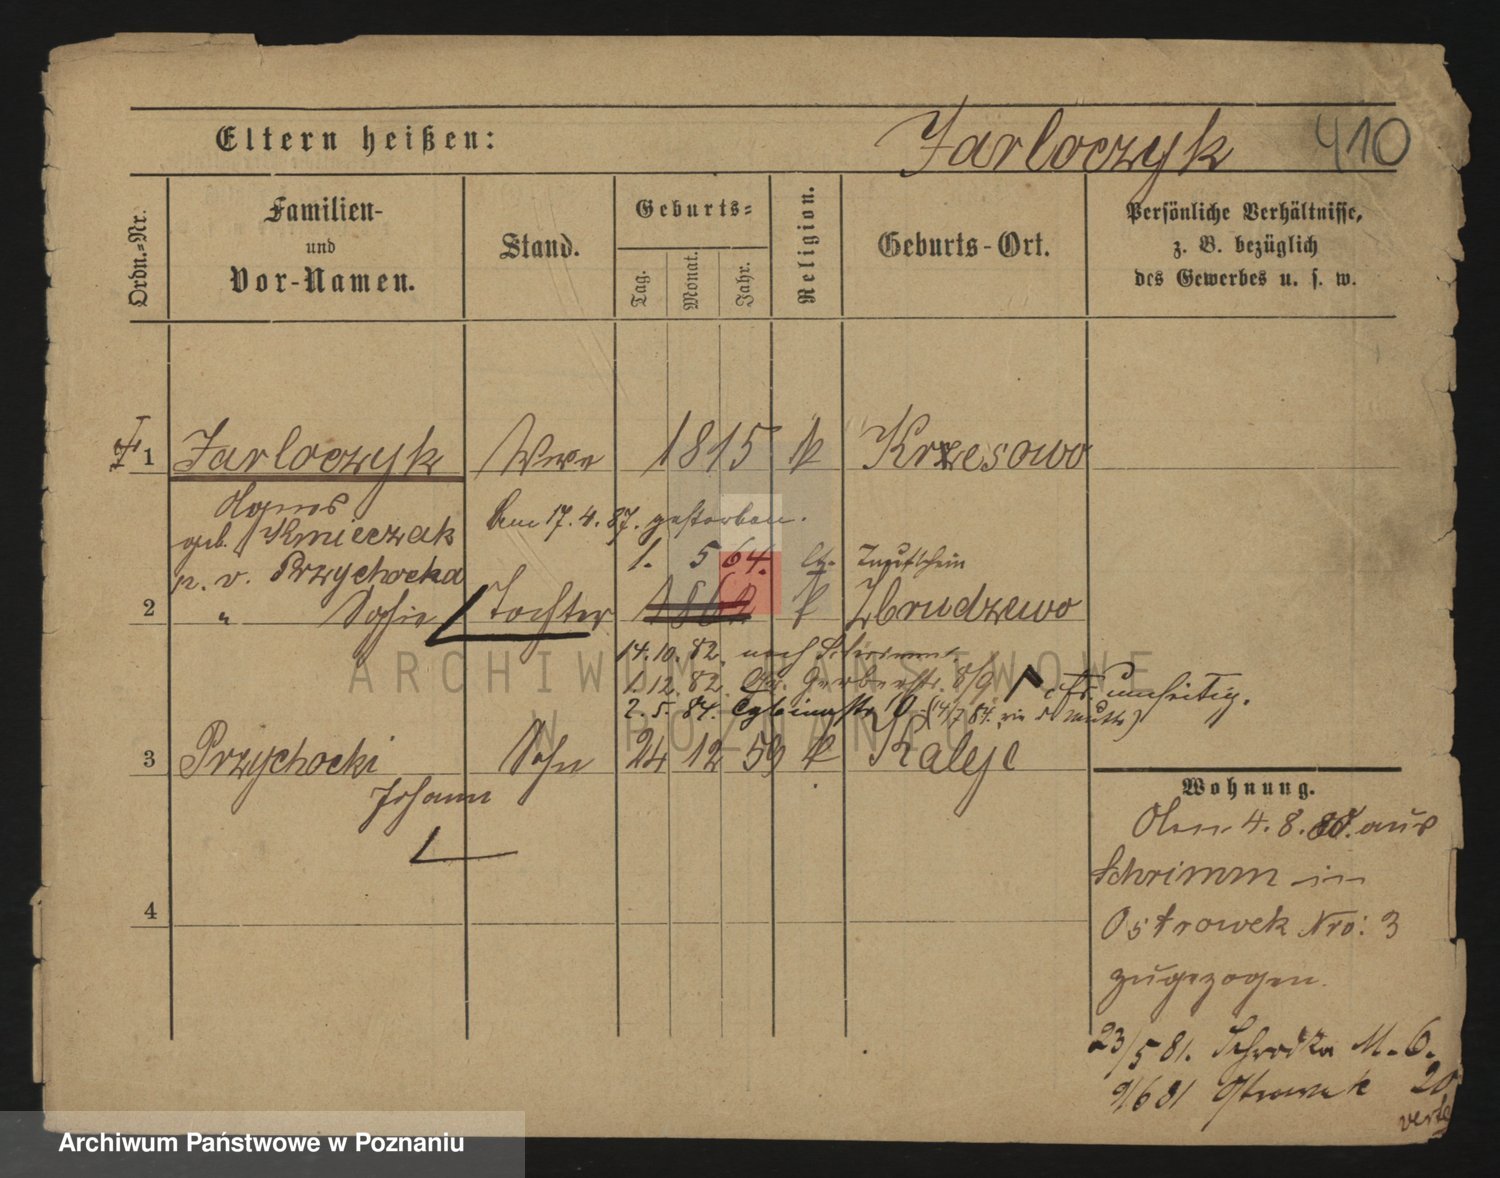 Eltern heißen:
Jarloczyk
410
Ordn.-Nr.
Familien-
und
Vor-Namen.
Stand.
Geburts-
Tag.
Monat.
Jahr.
Religion.
Geburts-Ort.
Persönliche Verhältnisse,
z. B. bezüglich
des Gewerbes u. s. w.
1 Jarloczyk Wwe 1815 k Krzesowo
Agnes
geb. Kmieczak
Am 17. 4. 87. gestorben.
p. v. Przychocka
1. 5 64. lt. Taufschein
2 " Sofie Tochter 1862 k Zbrudzewo
14. 10. 82. nach Schrimm.
1 12. 82. Gr. Gerberstr. 8/9 cfr. umseitig.
2. 5. 84. Cybinastr. 10 (14/7 84.
3 Przychocki Sohn 24 12 59 k Kaleje
Johann
Wohnung.
4. 8. 80. aus
Schrimm in
Ostrowek Nro: 3
zugezogen.
23/5 81. Schrodka M. 6.
9/6 81 Ostrowek 20
verte
4
ARCHIWUM PAŃSTWOWE
W POZNANIU
Archiwum Państwowe w Poznaniu